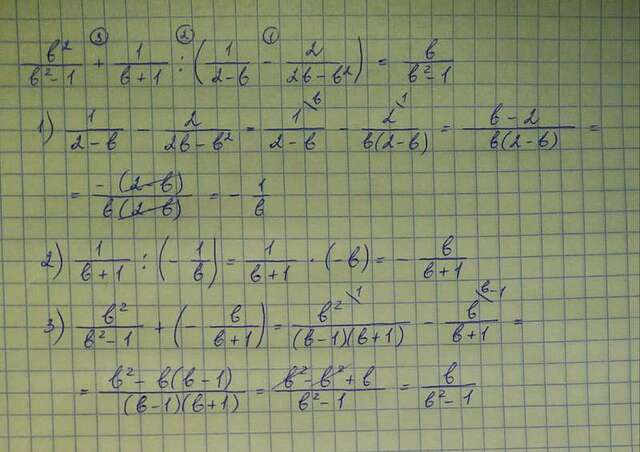 b²/(b²-1) + ③ 1/(b+1) : ② (1/(2-b) - ① 2/(2b-b²)) = b/(b²-1)
1) 1/(2-b) - 2/(2b-b²) = 1\b/(2-b) - 2\1/(b(2-b)) = (b-2)/(b(2-b)) =
= -(2-b)/(b(2-b)) = - 1/b
2) 1/(b+1) : (- 1/b) = 1/(b+1) · (-b) = - b/(b+1)
3) b²/(b²-1) + (- b/(b+1)) = b²\1/((b-1)(b+1)) - b\b-1/(b+1) =
= (b²-b(b-1))/((b-1)(b+1)) = (b²-b²+b)/(b²-1) = b/(b²-1)